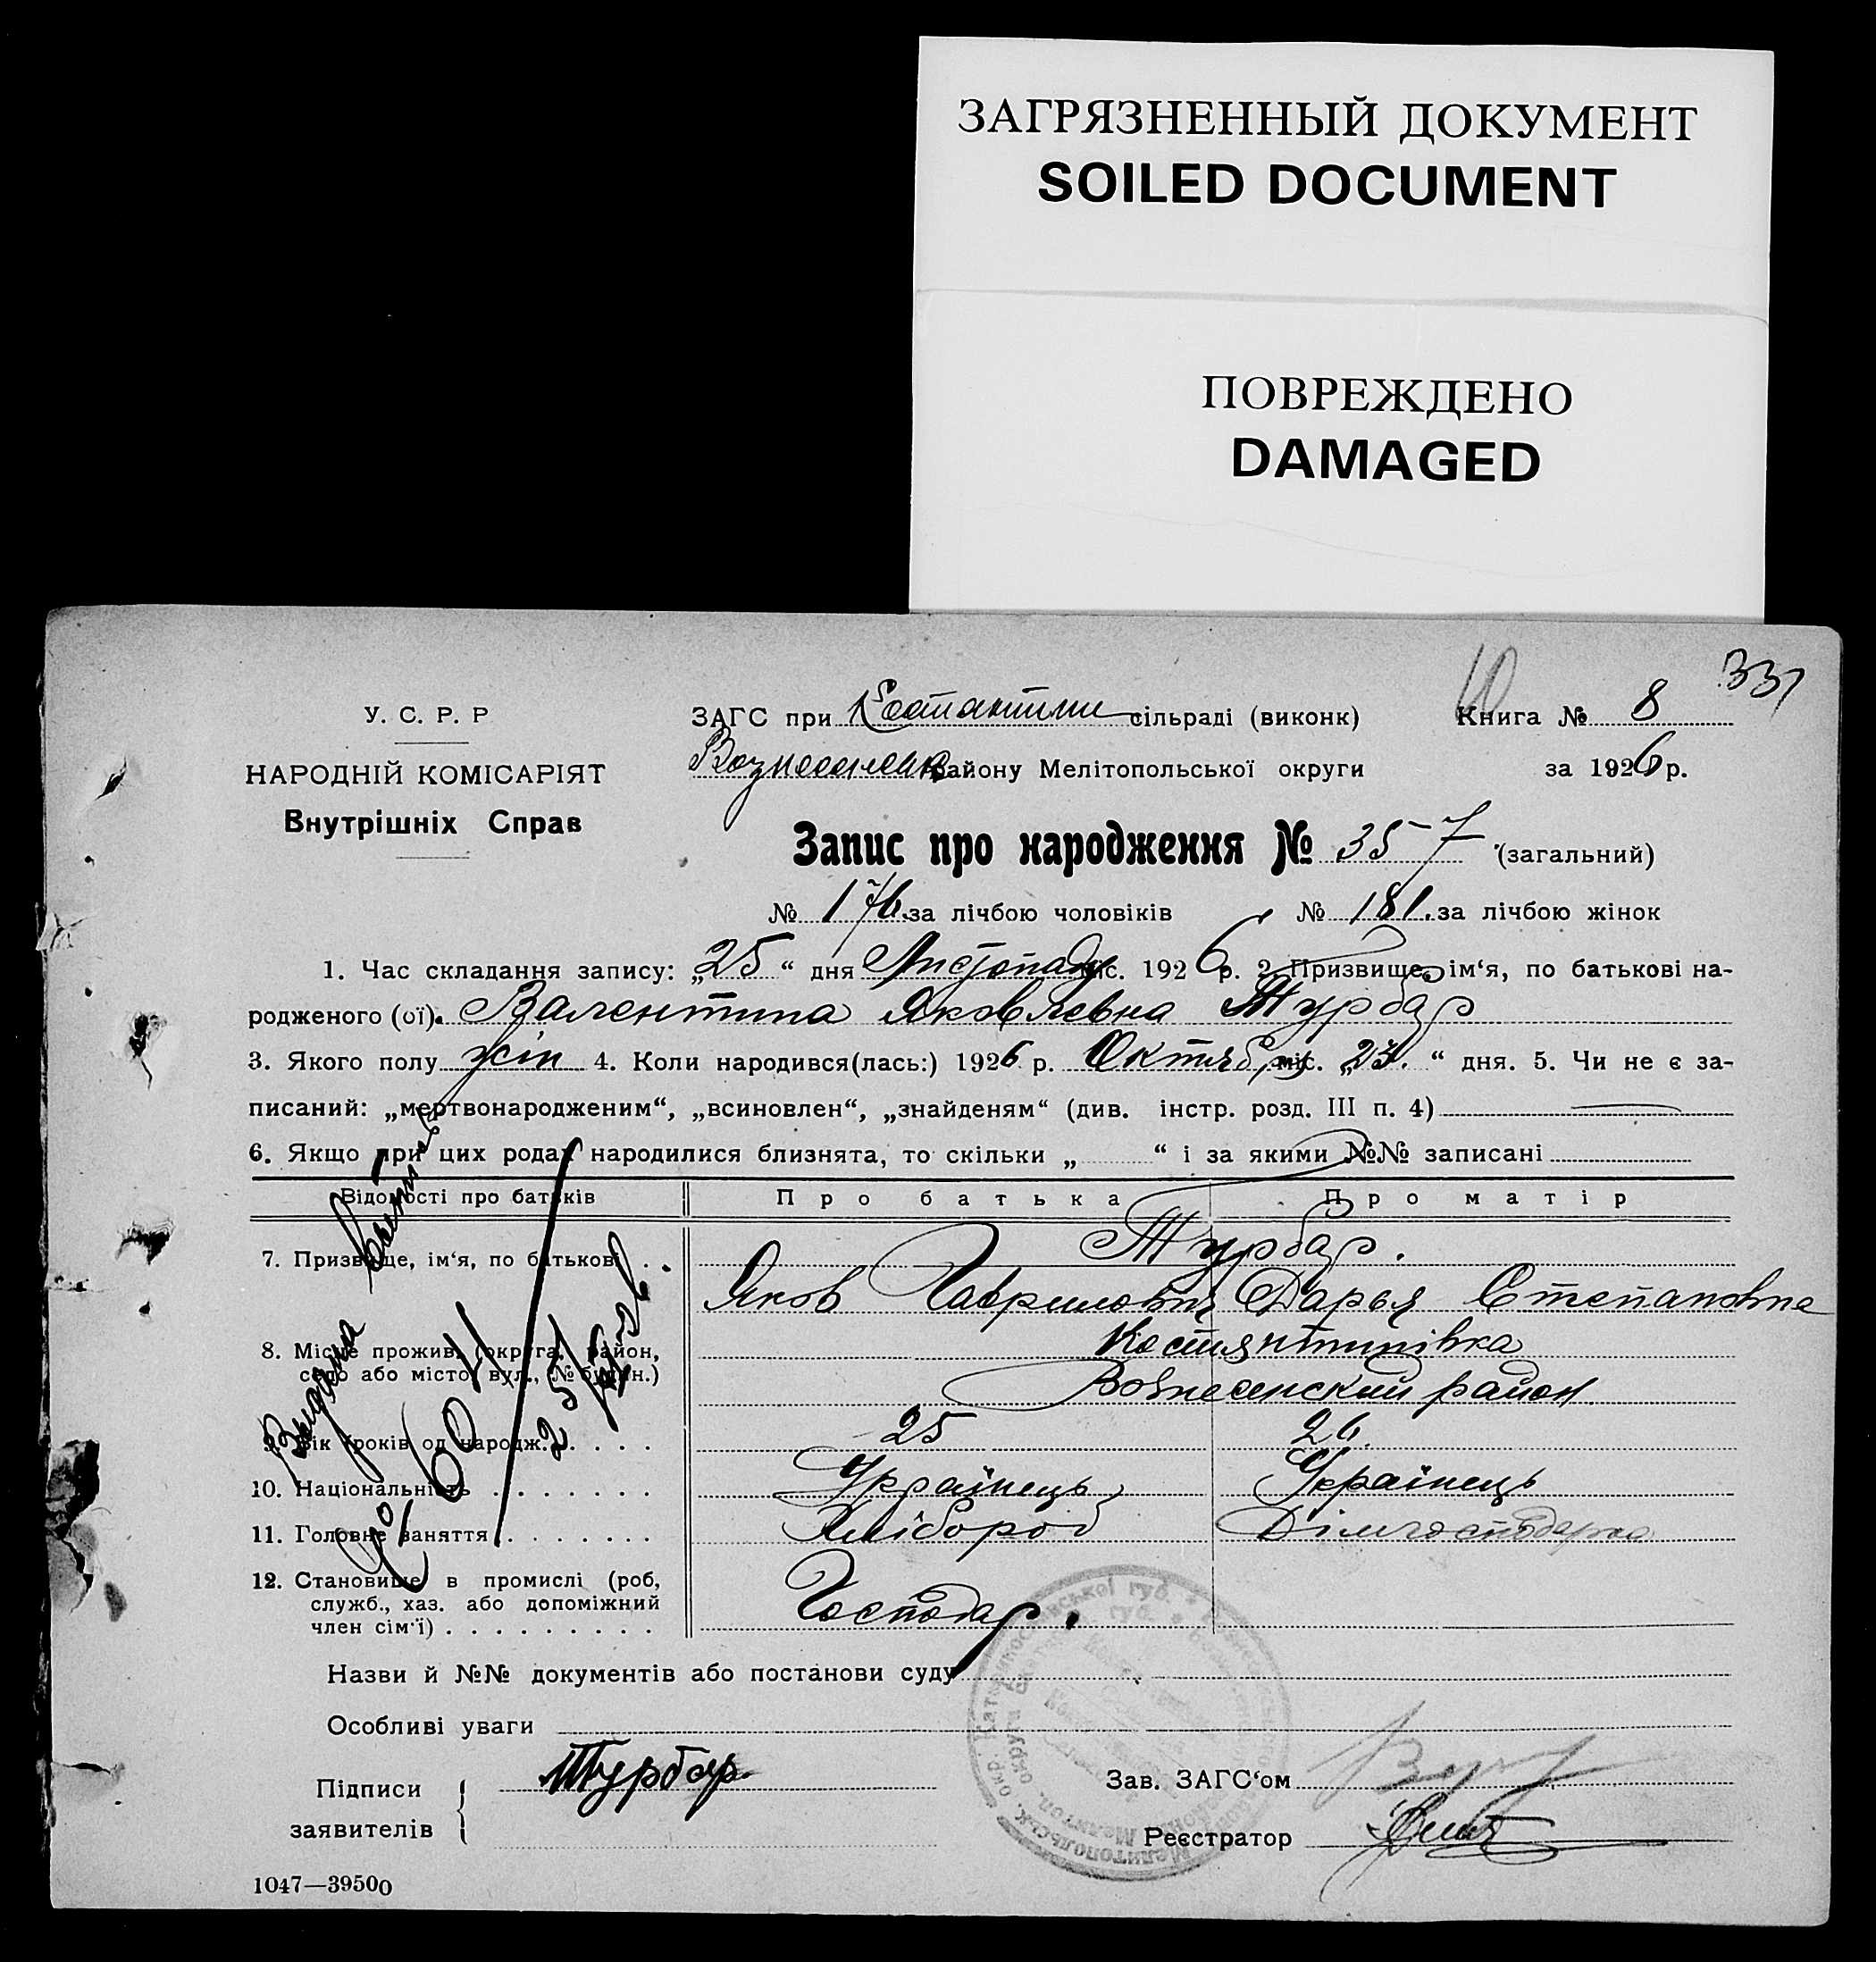 ЗАГРЯЗНЕННЫЙ ДОКУМЕНТ
SOILED DOCUMENT
ПОВРЕЖДЕНО
DAMAGED
10 331
У. С. Р. Р
НАРОДНІЙ КОМІСАРІЯТ
Внутрішніх Справ
ЗАГС при сільраді (виконк) Книга № 8
району Мелітопольської округи за 1926 р.
Запис про народження № 357 (загальний)
№ 176 за лічбою чоловіків № 181. за лічбою жінок
1. Час складання запису: „25“ дня Листопаду міс. 1926 р. 2. Призвище, ім‘я, по батькові на-
родженого (ої). Валентина Яковлевна Турбар
3. Якого полу жін 4. Коли народився(лась:) 1926 р. Октяб. міс. „23.“ дня. 5. Чи не є за-
писаний: „мертвонародженим“, „всиновлен“, „знайденям“ (див. інстр. розд. III п. 4)
6. Якщо при цих родах народилися близнята, то скільки „ “ і за якими №№ записані
Відомості про батьків Про батька Про матір
7. Призвище, ім‘я, по батькові . . Турбар.
Яков Гаврилович Дарья Степановна
8. Місце прожив. (округа, район, Костянтинівка
село або місто, вул., № будин.)
Вознесенский район
9. Вік (років од народж.) . . . . 25 26.
10. Національність . . . . . . . Українець Українець
11. Головне заняття . . . . . . . Хлібороб Дімгосподарка
12. Становище в промислі (роб,
служб., хаз. або допоміжний
член сім‘ї) . . . . . . . . . Господар.
Выдана
№ 6041
Назви й №№ документів або постанови суду
Особливі уваги
Підписи
заявителів
Турбар
Зав. ЗАГС‘ом
Реєстратор
1047—39500